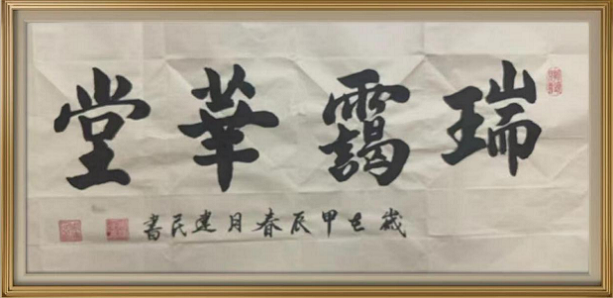 瑞靄華堂
歲在甲辰春月建民書